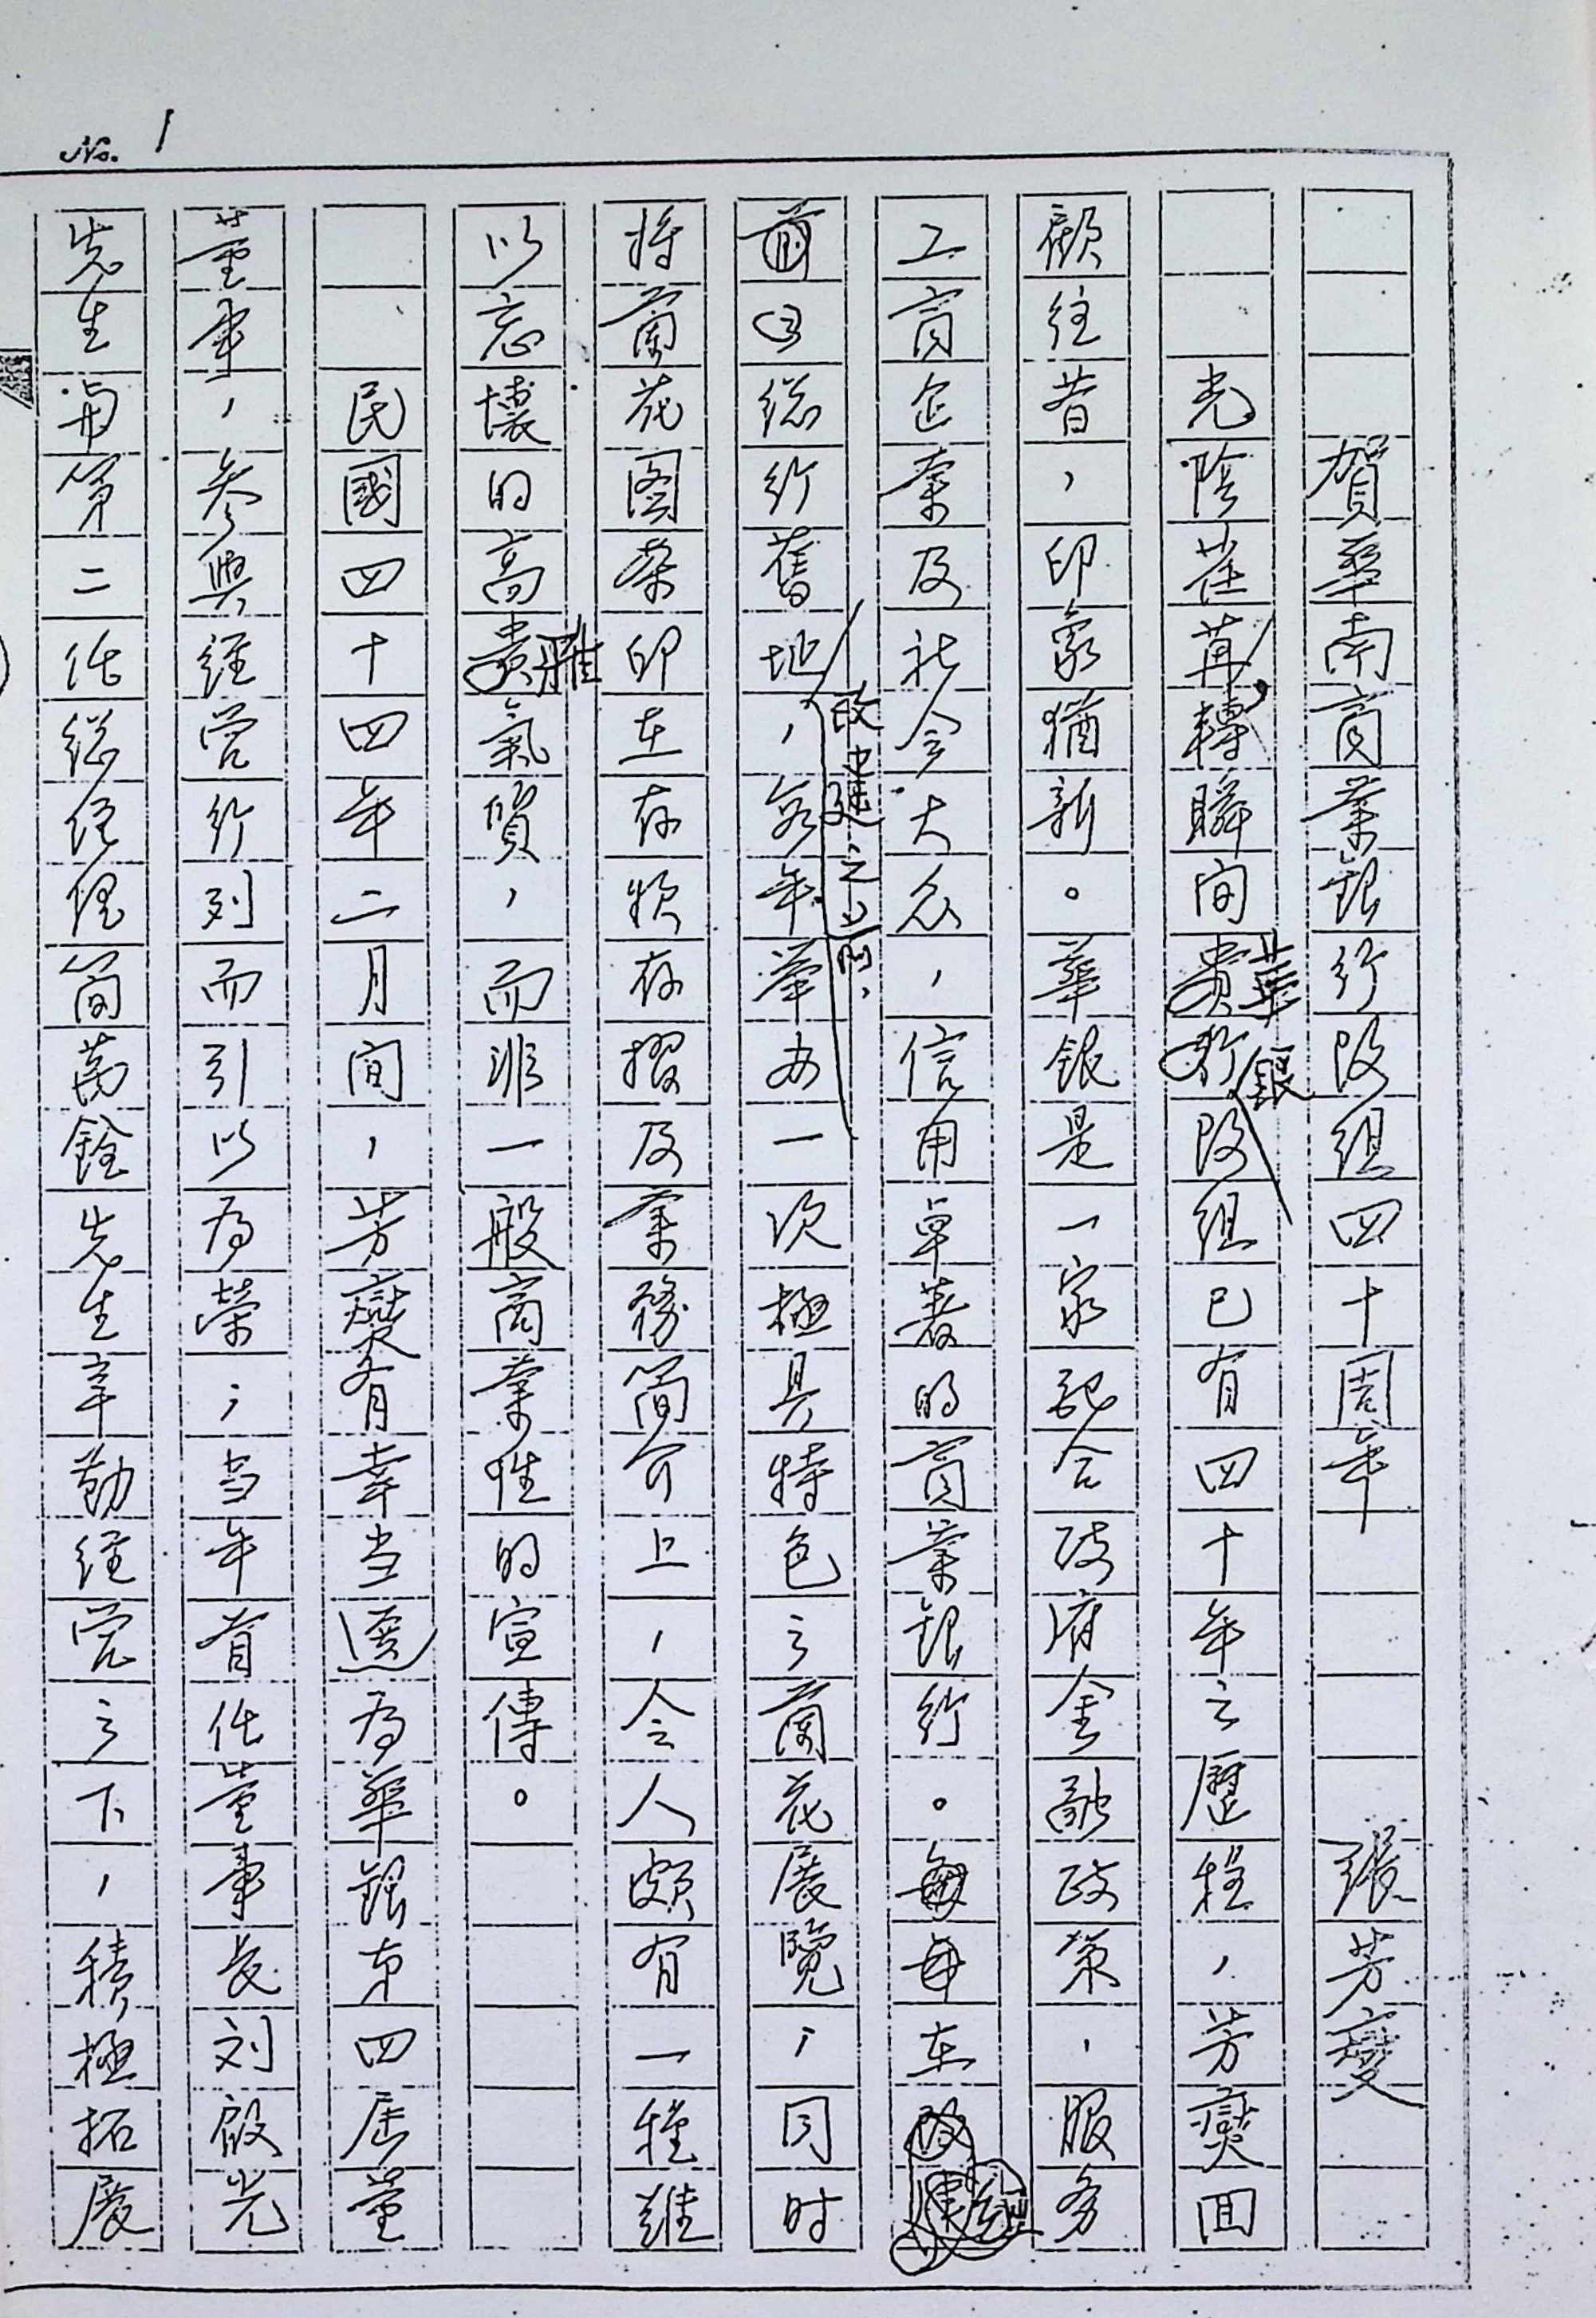 No. 1
賀華南商業銀行改組四十周年 張芳燮
光陰荏苒，轉瞬間華銀改組已有四十年之歷程，芳燮回
顧往昔，印象猶新。華銀是一家配合政府金融政策，服务
工商企業及社会大众，信用卓著的商業銀行。每年在
目前総行舊地，每年举办一次極具特色之蘭花展覽，同时
改建之
将蘭花图案印在存款存摺及業務简介上，令人頗有一種難
以忘懷的高雅氣質，而非一般商業性的宣傳。
民國四十四年二月间，芳燮有幸当選為華銀第四屆董
董事，參與經营行列而引以為榮；当年首任董事長刘啟光
先生與第二任総經理简萬銓先生辛勤經营之下，積極拓展